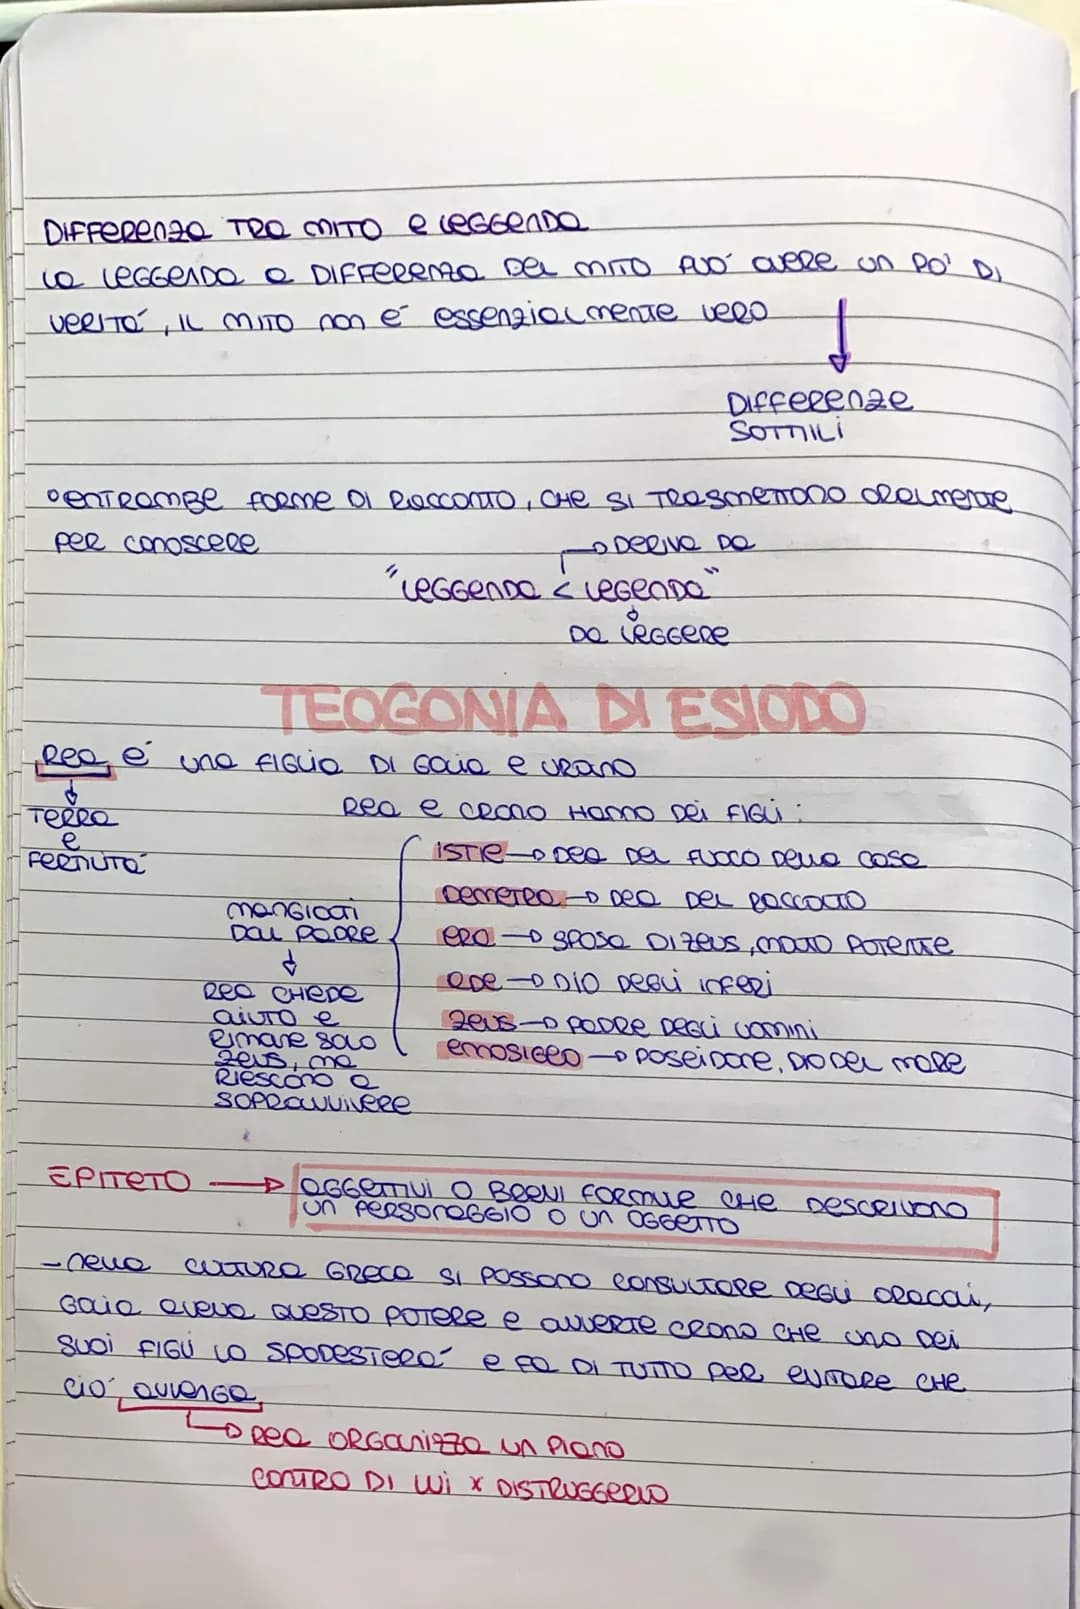 DIFFERENZA TRA MITO E LEGGENDA
LA LEGGENDA A DIFFERENZA DEL MITO PUÓ AVERE UN PO' DI
VERITÁ, IL MITO NON É ESSENZIALMENTE VERO
DIFFERENZE
SOTTILI
°ENTRAMBE FORME DI RACCONTO, CHE SI TRASMETTONO ORALMENTE
PER CONOSCERE
→ DERIVA DA
"LEGGENDA < LEGENDA"
DA LEGGERE
TEOGONIA DI ESIODO
REA É UNA FIGLIA DI GAIA E URANO
TERRA
E
FERTILITÁ
REA E CRONO HANNO DEI FIGLI:
ISTIE → DEA DEL FUOCO DELLA CASA
DEMETRA → DEA DEL RACCOLTO
ERA → SPOSA DI ZEUS, MOLTO POTENTE
ADE → DIO DEGLI INFERI
ZEUS → PADRE DEGLI UOMINI
ENOSIGEO → POSEIDONE, DIO DEL MARE
MANGIATI
DAL PADRE
REA CHIEDE
AIUTO E
RIMANE SOLO
ZEUS, MA
RIESCONO A
SOPRAVVIVERE
EPITETO → AGGETTIVI O BREVI FORMULE CHE DESCRIVONO
UN PERSONAGGIO O UN OGGETTO
- NELLA CULTURA GRECA SI POSSONO CONSULTARE DEGLI ORACOLI,
GAIA AVEVA QUESTO POTERE E AVVERTE CRONO CHE UNO DEI
SUOI FIGLI LO SPODESTERÁ E FA DI TUTTO PER EVITARE CHE
CIÓ AVVENGA
→ REA ORGANIZZA UN PIANO
CONTRO DI LUI X DISTRUGGERLO